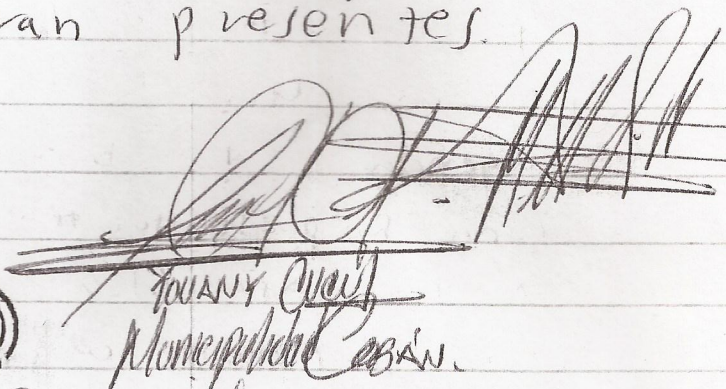 van presentes.
YOVANY CUCUL
Municipalidad COBÁN.